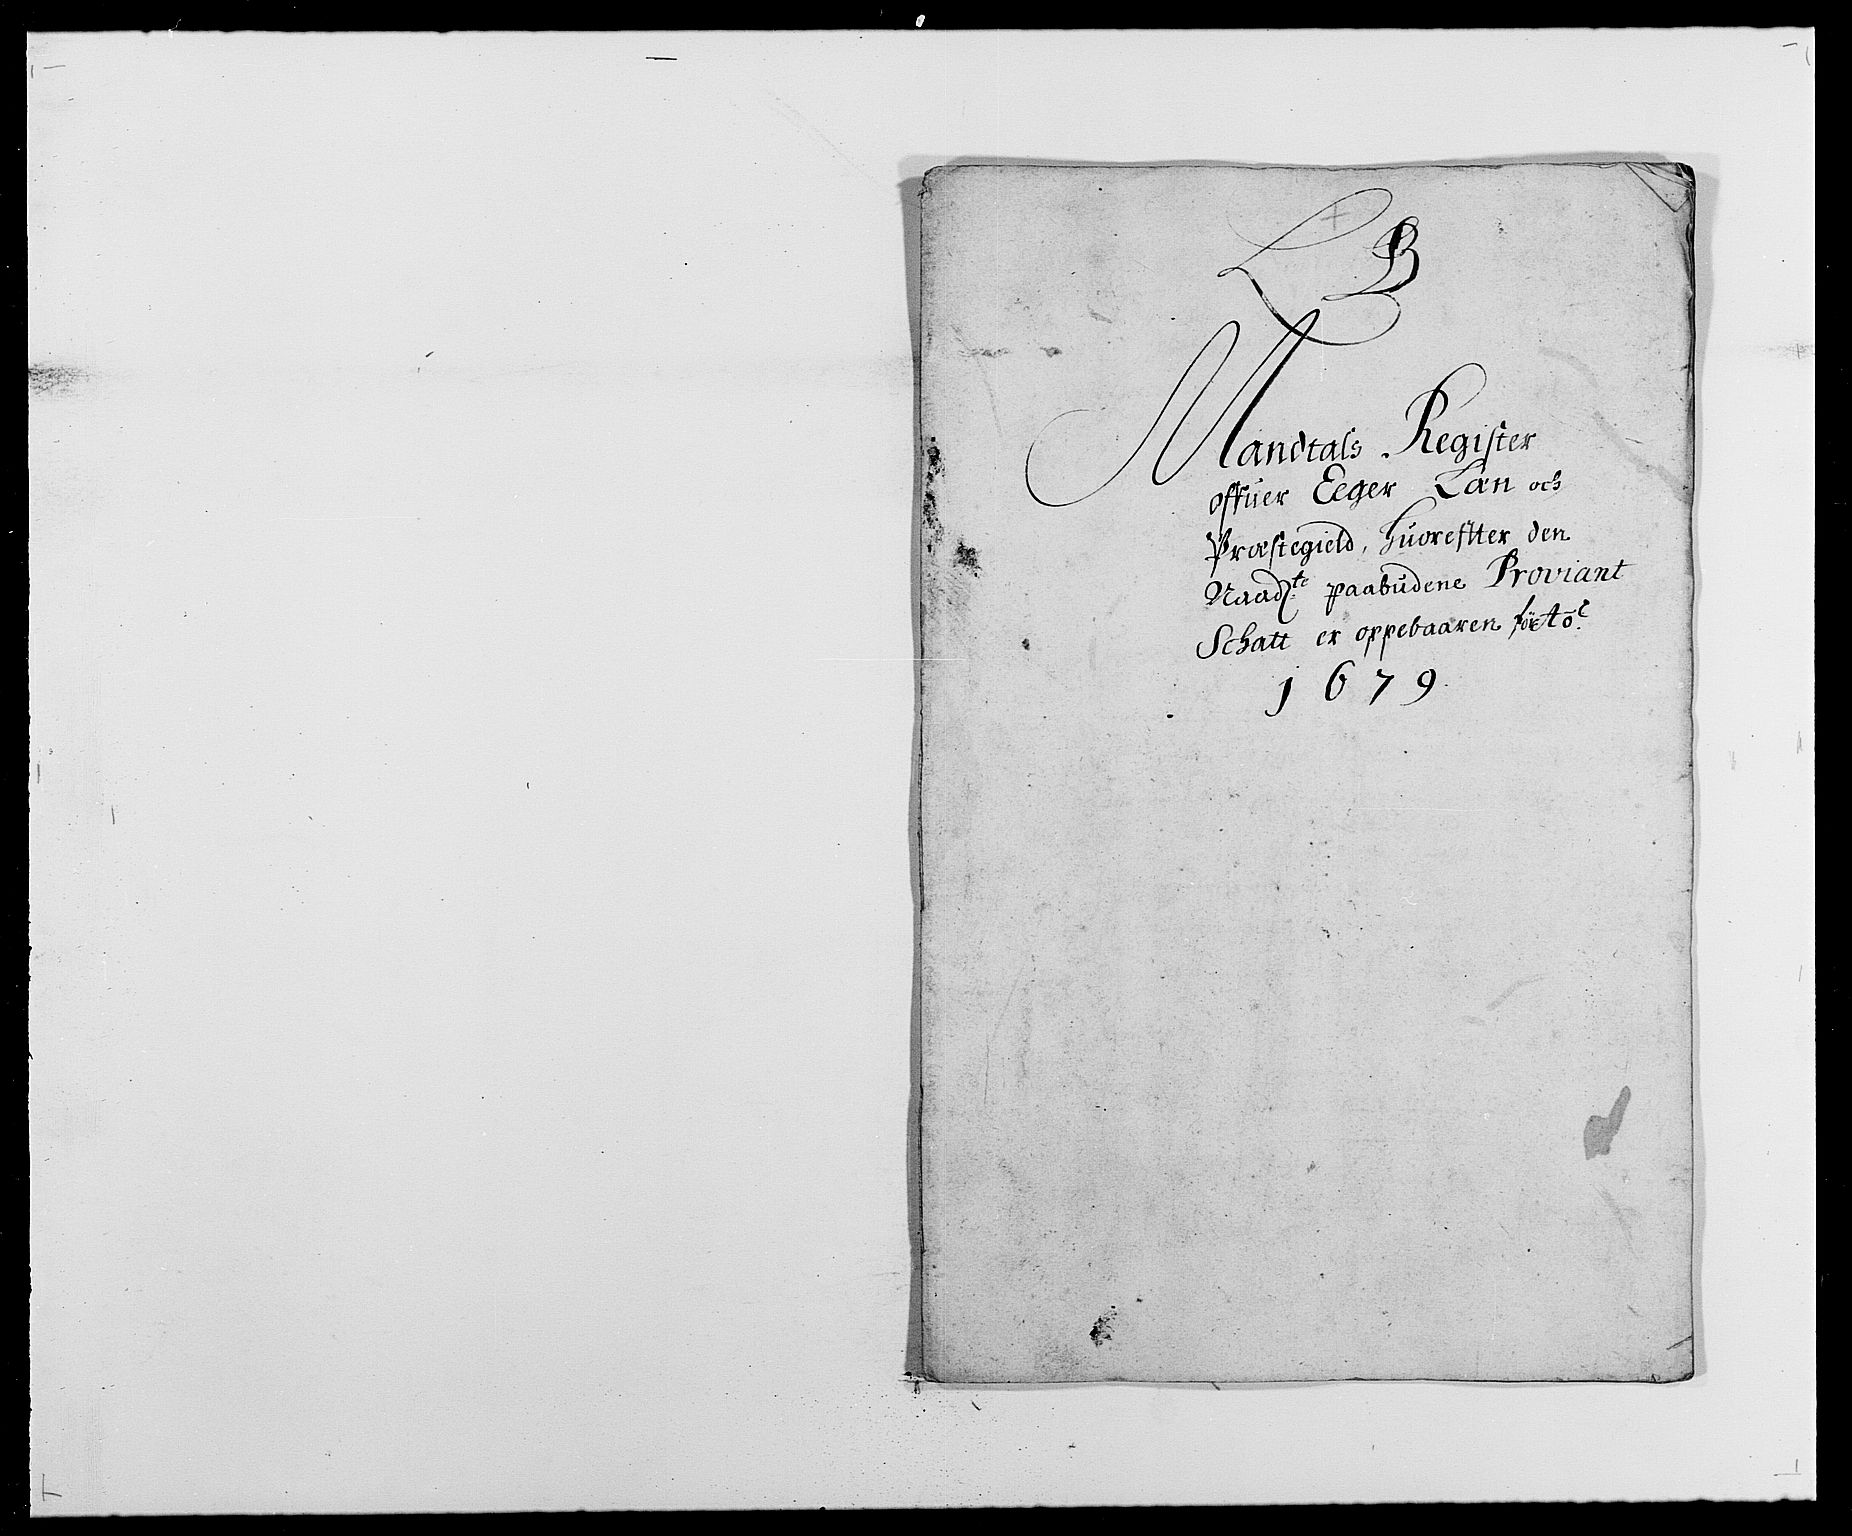 L B
Mandtals Register
offuer Eeger Læn och
Præstegield, huoreffter den
Naadte paabudene Proviant
Schatt er oppebaaren for
1679